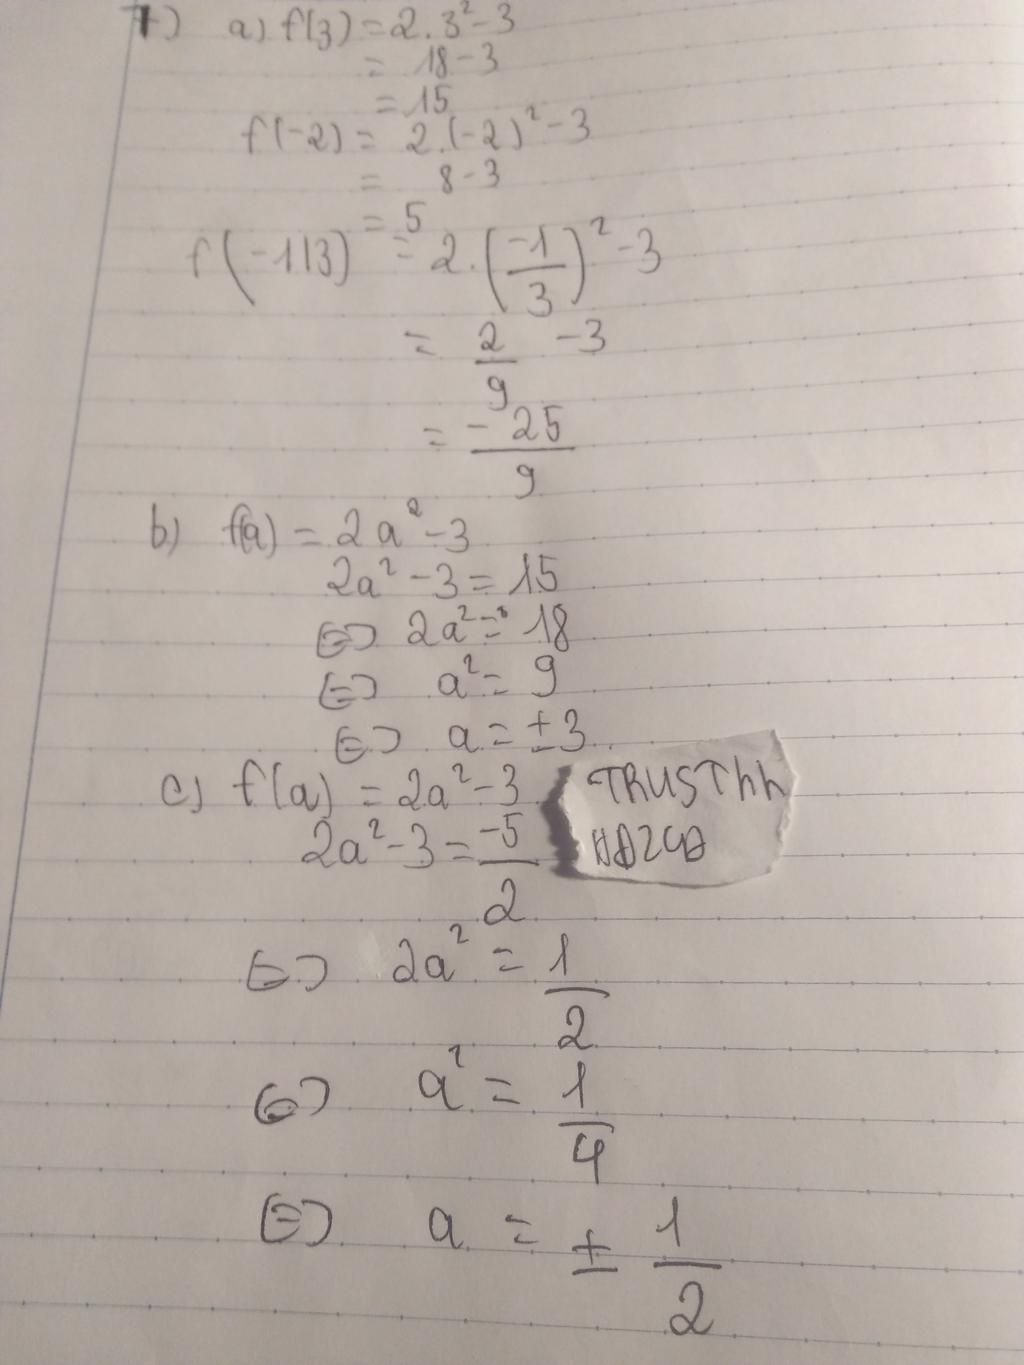 1) a) f(3) = 2.3² - 3
= 18 - 3
= 15
f(-2) = 2.(-2)² - 3
= 8 - 3
= 5
f(-1|3) = 2.(-1/3)² - 3
= 2/9 - 3
= -25/9
b) f(a) = 2a² - 3
2a² - 3 = 15
⇔ 2a² = 18
⇔ a² = 9
⇔ a = ±3
c) f(a) = 2a² - 3
2a² - 3 = -5/2
⇔ 2a² = 1/2
⇔ a² = 1/4
⇔ a = ± 1/2
TRUSThh